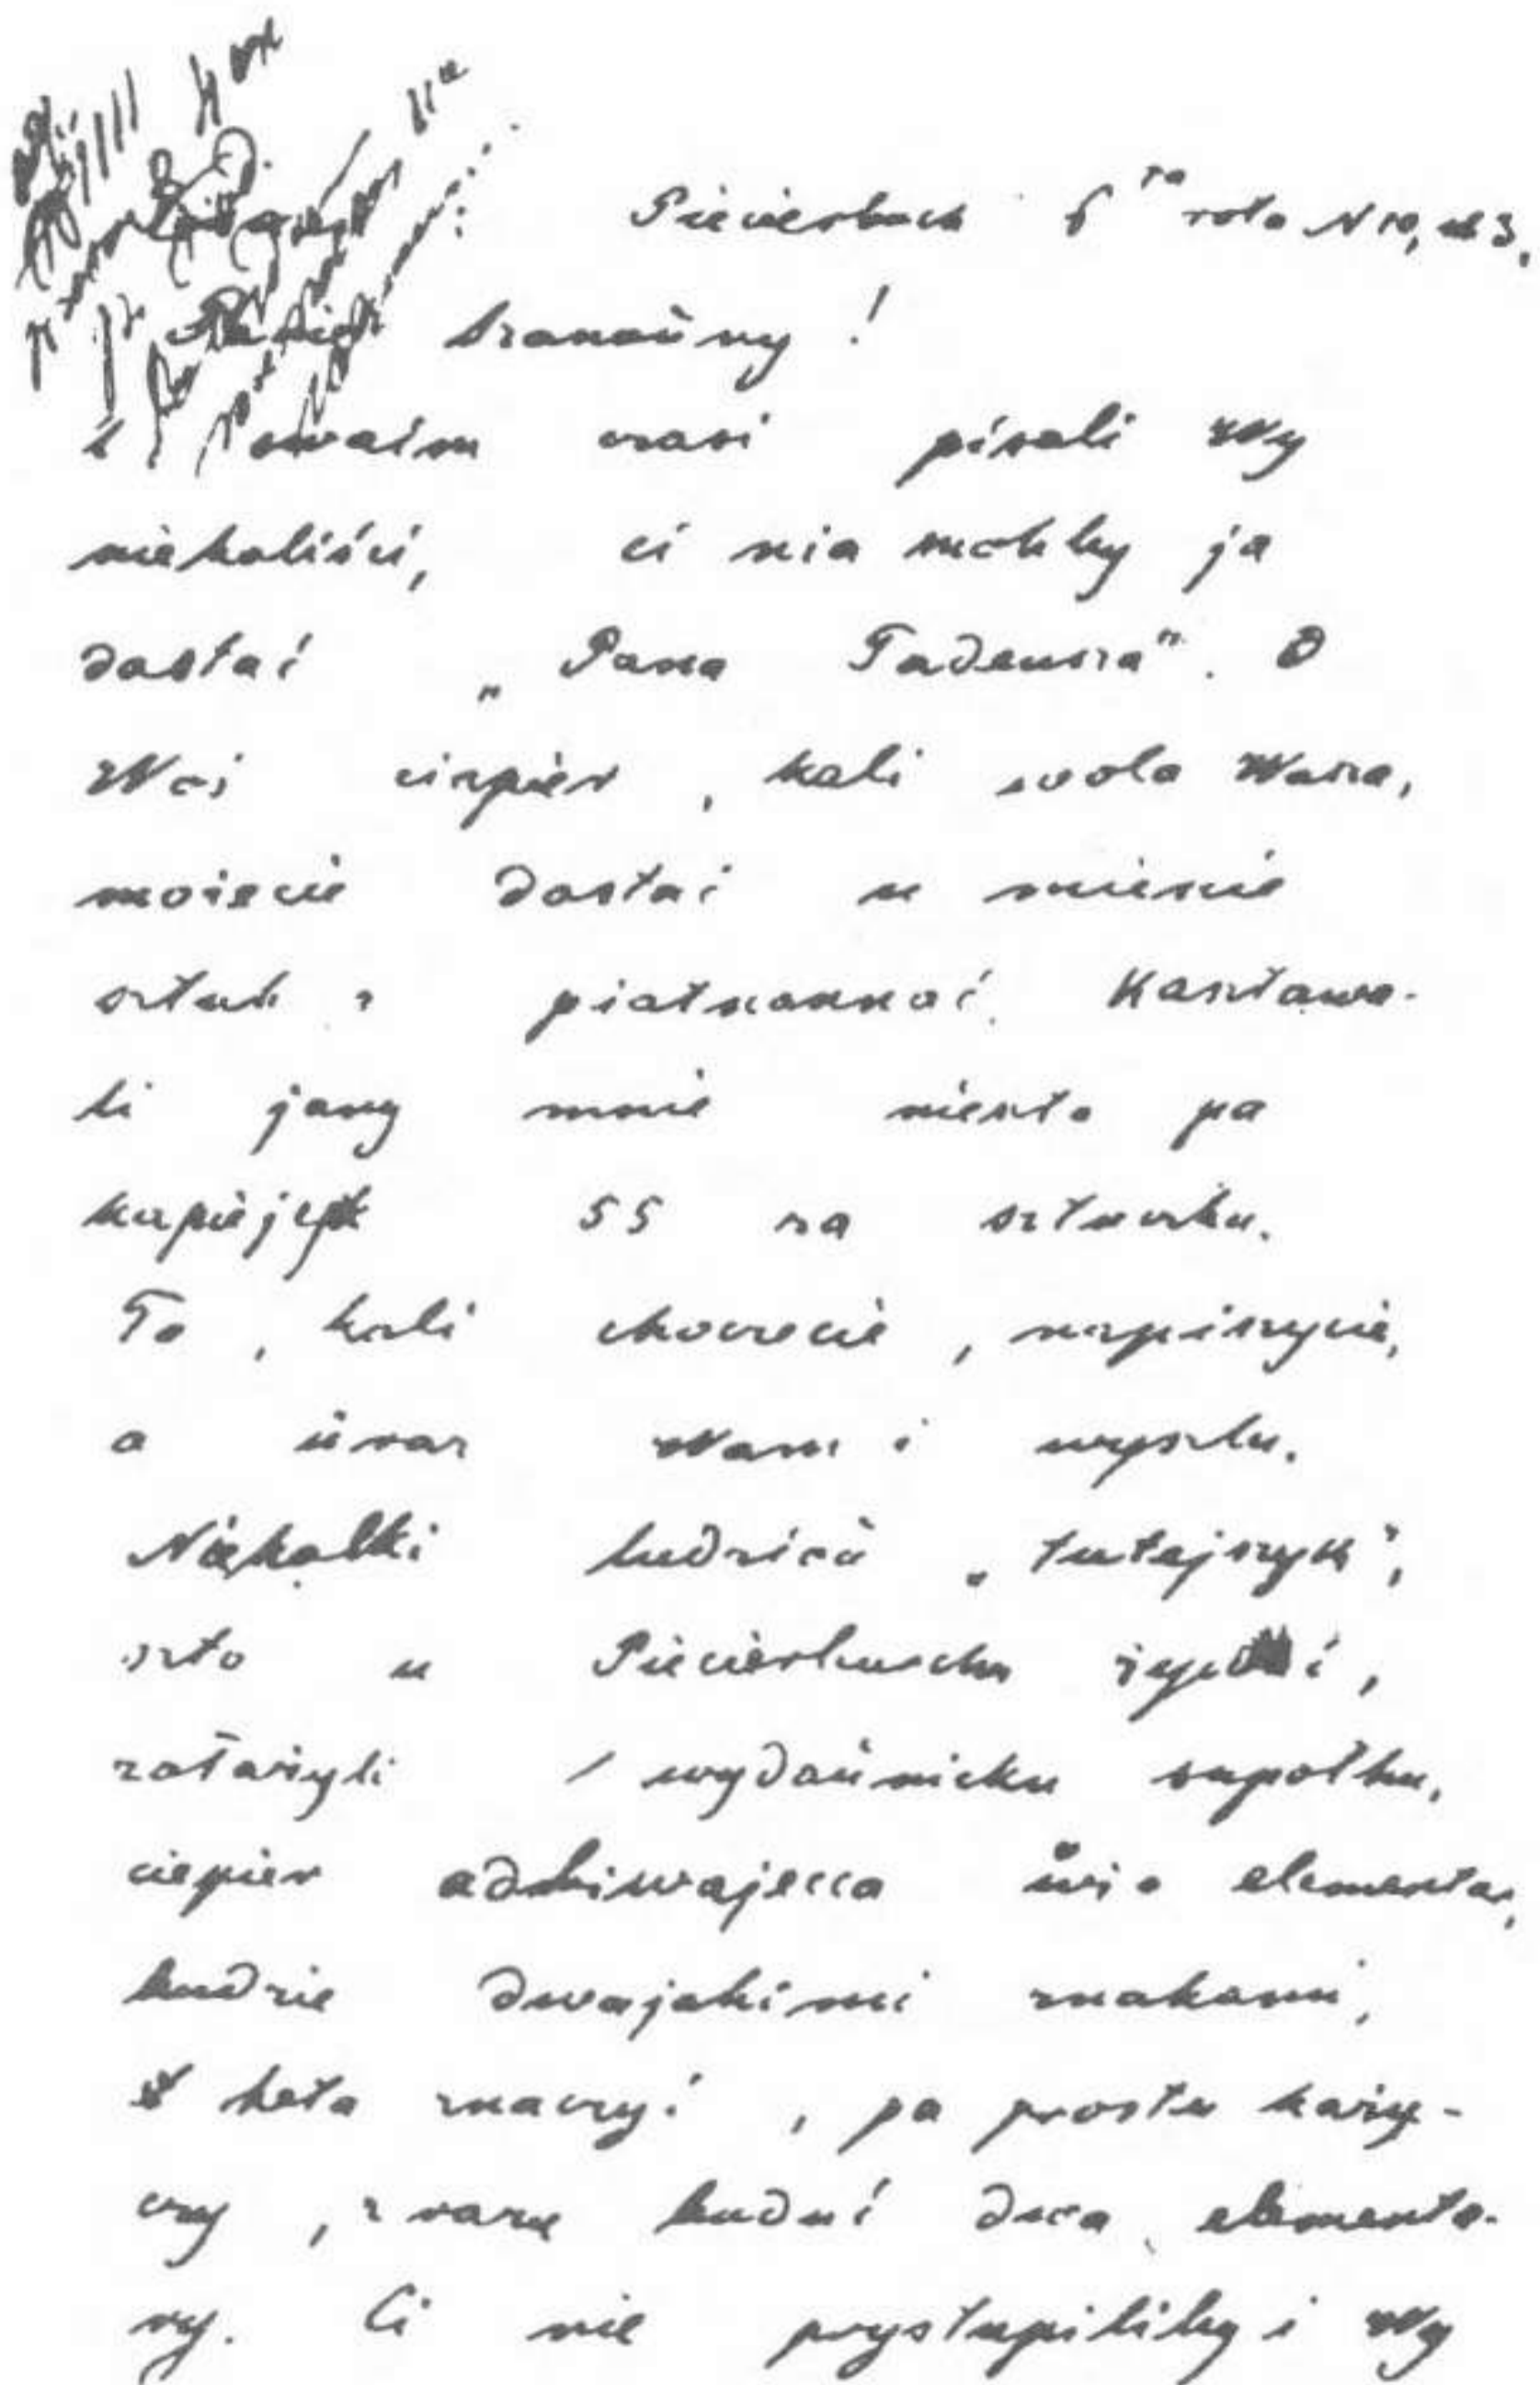 Pieciarburh 6 ta rota N 10, m 3.
Panie Szanoŭny!
U swaim czasi pisali Wy
niekaliści, ci nia moh by ja
dastać „Pana Tadeusza”. O
Woś cieper, kali wola Wasza,
możecie dastać u mienie
sztuk z piatnaccać. Kasztawa-
li jany mnie niesto pa
kapiejek 55 za sztuczku.
To, kali choczecie, napiszycie,
a ŭraz Wam i wyszlu.
Niekalki ludzieŭ „tutejszych”,
szto u Pieciarburchu żywuć,
załażyli wydaŭnicku supołku,
ciepier adbiwajecca ŭżo elementar,
budzie dwajakimi znakami,
heta znaczyć, pa prostu każu-
czy, zrazu buduć dwa elementa-
ry. Ci nie prystupiliby i Wy